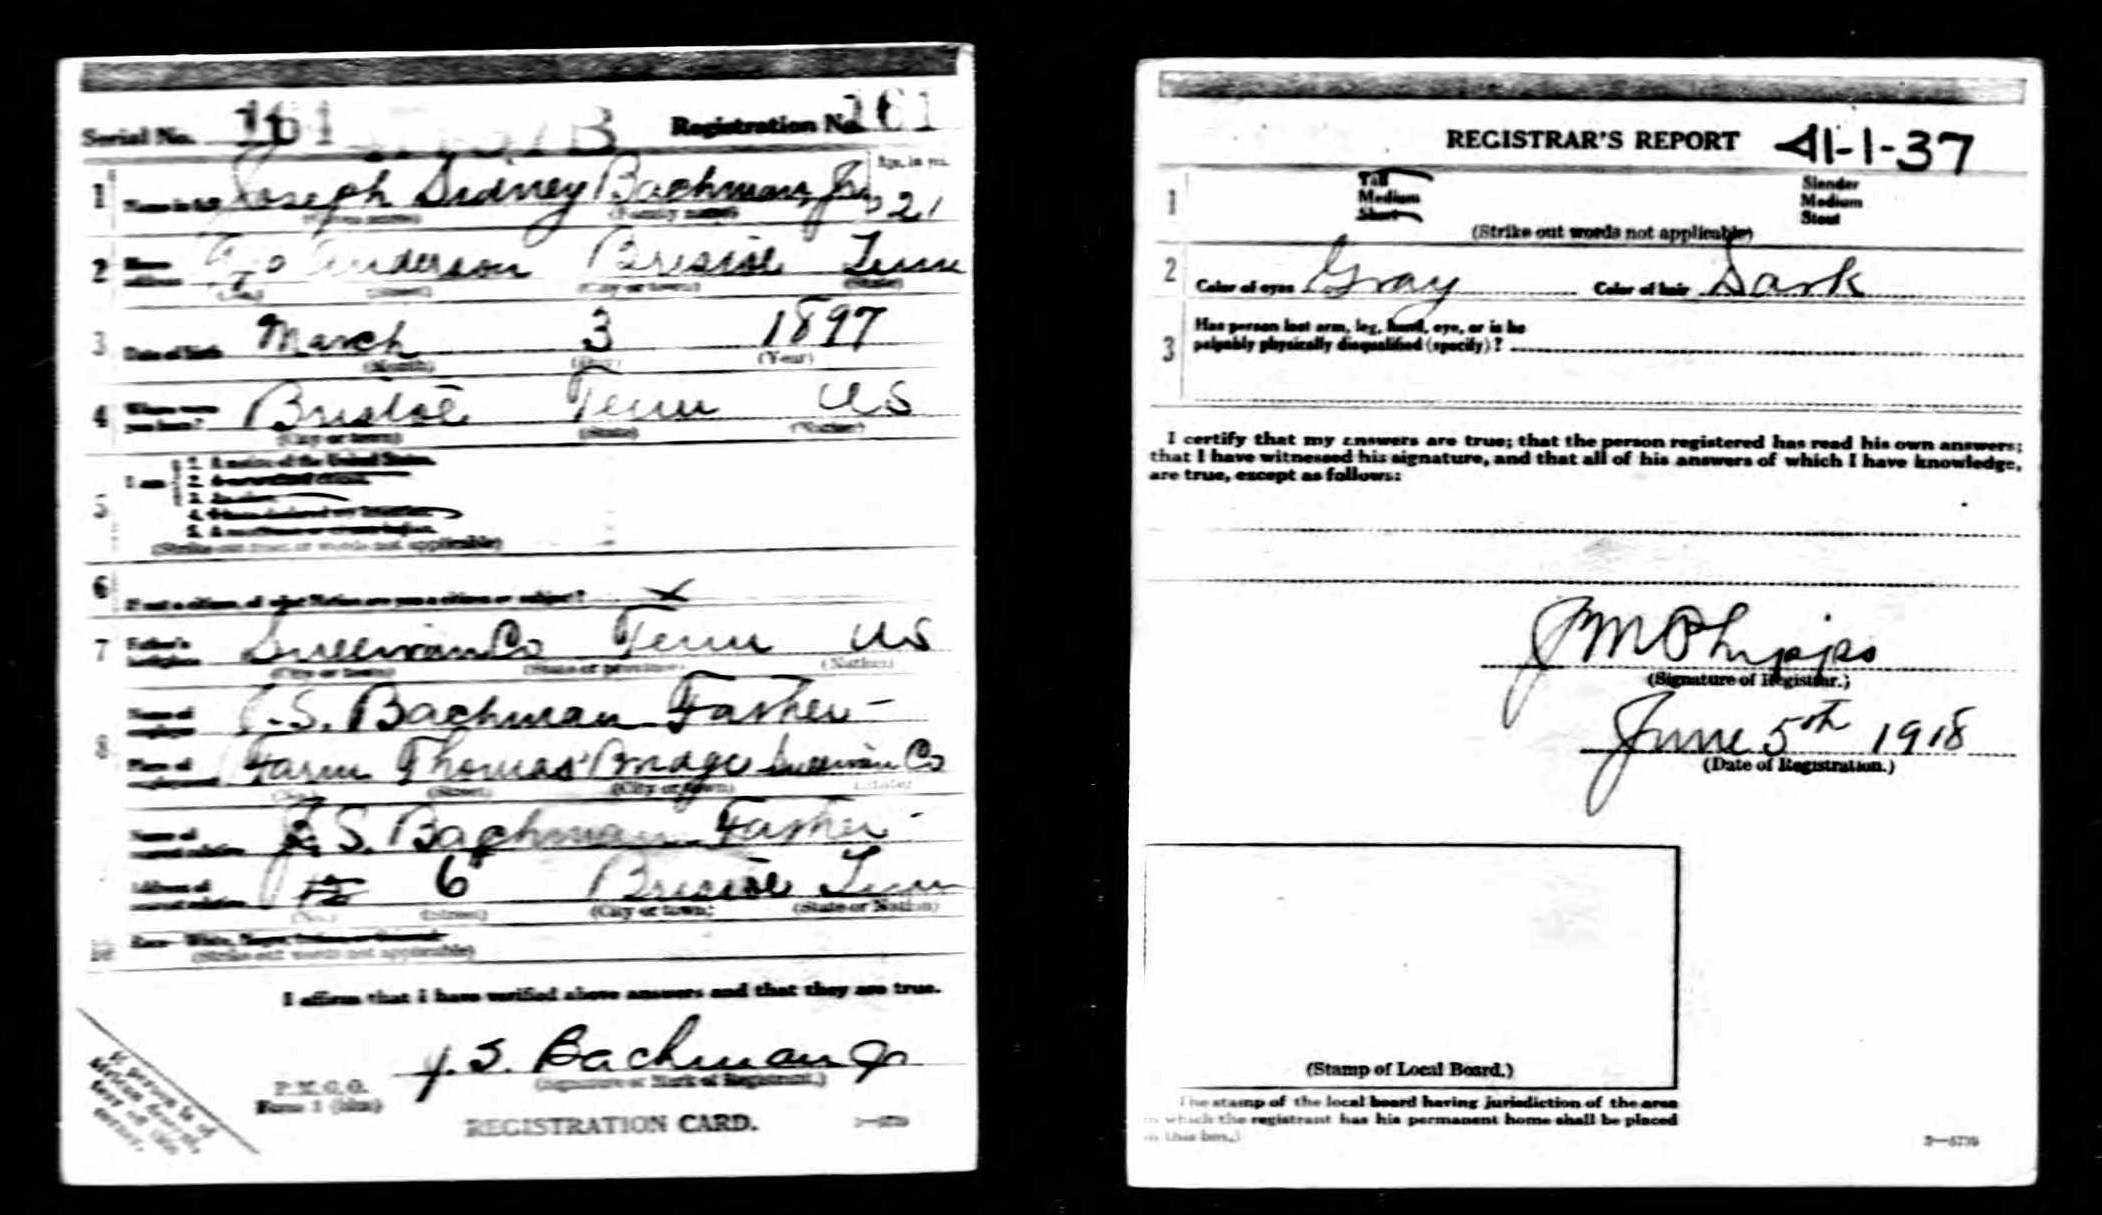 Serial No. 161 Registration No. 161
1 Name in full Joseph Sidney Bachman, Jr. Age, in yrs. 21
(Given name) (Family name)
2 Home address Anderson Bristol Tenn
(No.) (Street) (City or town) (State)
3 Date of birth March 3 1897
(Month) (Day) (Year)
4 Where were you born? Bristol Tenn US
(City or town) (State) (Nation)
I am 1. A native of the United States.
2. A naturalized citizen.
3. An alien.
4. I have declared my intention.
5
5. A noncitizen or citizen Indian.
(Strike out lines or words not applicable)
6 If not a citizen, of what Nation are you a citizen or subject? x
7 Father's birthplace Sullivan Co Tenn US
(City or town) (State or province) (Nation)
Name of employer J.S. Bachman Father -
8 Place of employment Farm Thomas Bridge Sullivan Co
(No.) (Street) (City or town) (State)
Name of nearest relative J.S. Bachman Father -
Address of nearest relative 6 Bristol Tenn
(No.) (Street) (City or town) (State or Nation)
10 Race—White, Negro, Indian, or Oriental
(Strike out words not applicable)
I affirm that I have verified above answers and that they are true.
J. S. Bachman Jr
(Signature or Mark of Registrant.)
P. M. G. O.
Form 1 (blue)
REGISTRATION CARD.
If person is of
African descent,
tear off this
corner.
REGISTRAR'S REPORT 41-1-37
1 Tall Slender
Medium Medium
Short Stout
(Strike out words not applicable)
2 Color of eyes Gray Color of hair Dark
3 Has person lost arm, leg, hand, eye, or is he
palpably physically disqualified (specify)?
I certify that my answers are true; that the person registered has read his own answers;
that I have witnessed his signature, and that all of his answers of which I have knowledge,
are true, except as follows:
J M Phipps
(Signature of Registrar.)
June 5th 1918
(Date of Registration.)
(Stamp of Local Board.)
The stamp of the local board having jurisdiction of the area
in which the registrant has his permanent home shall be placed
in this box.)